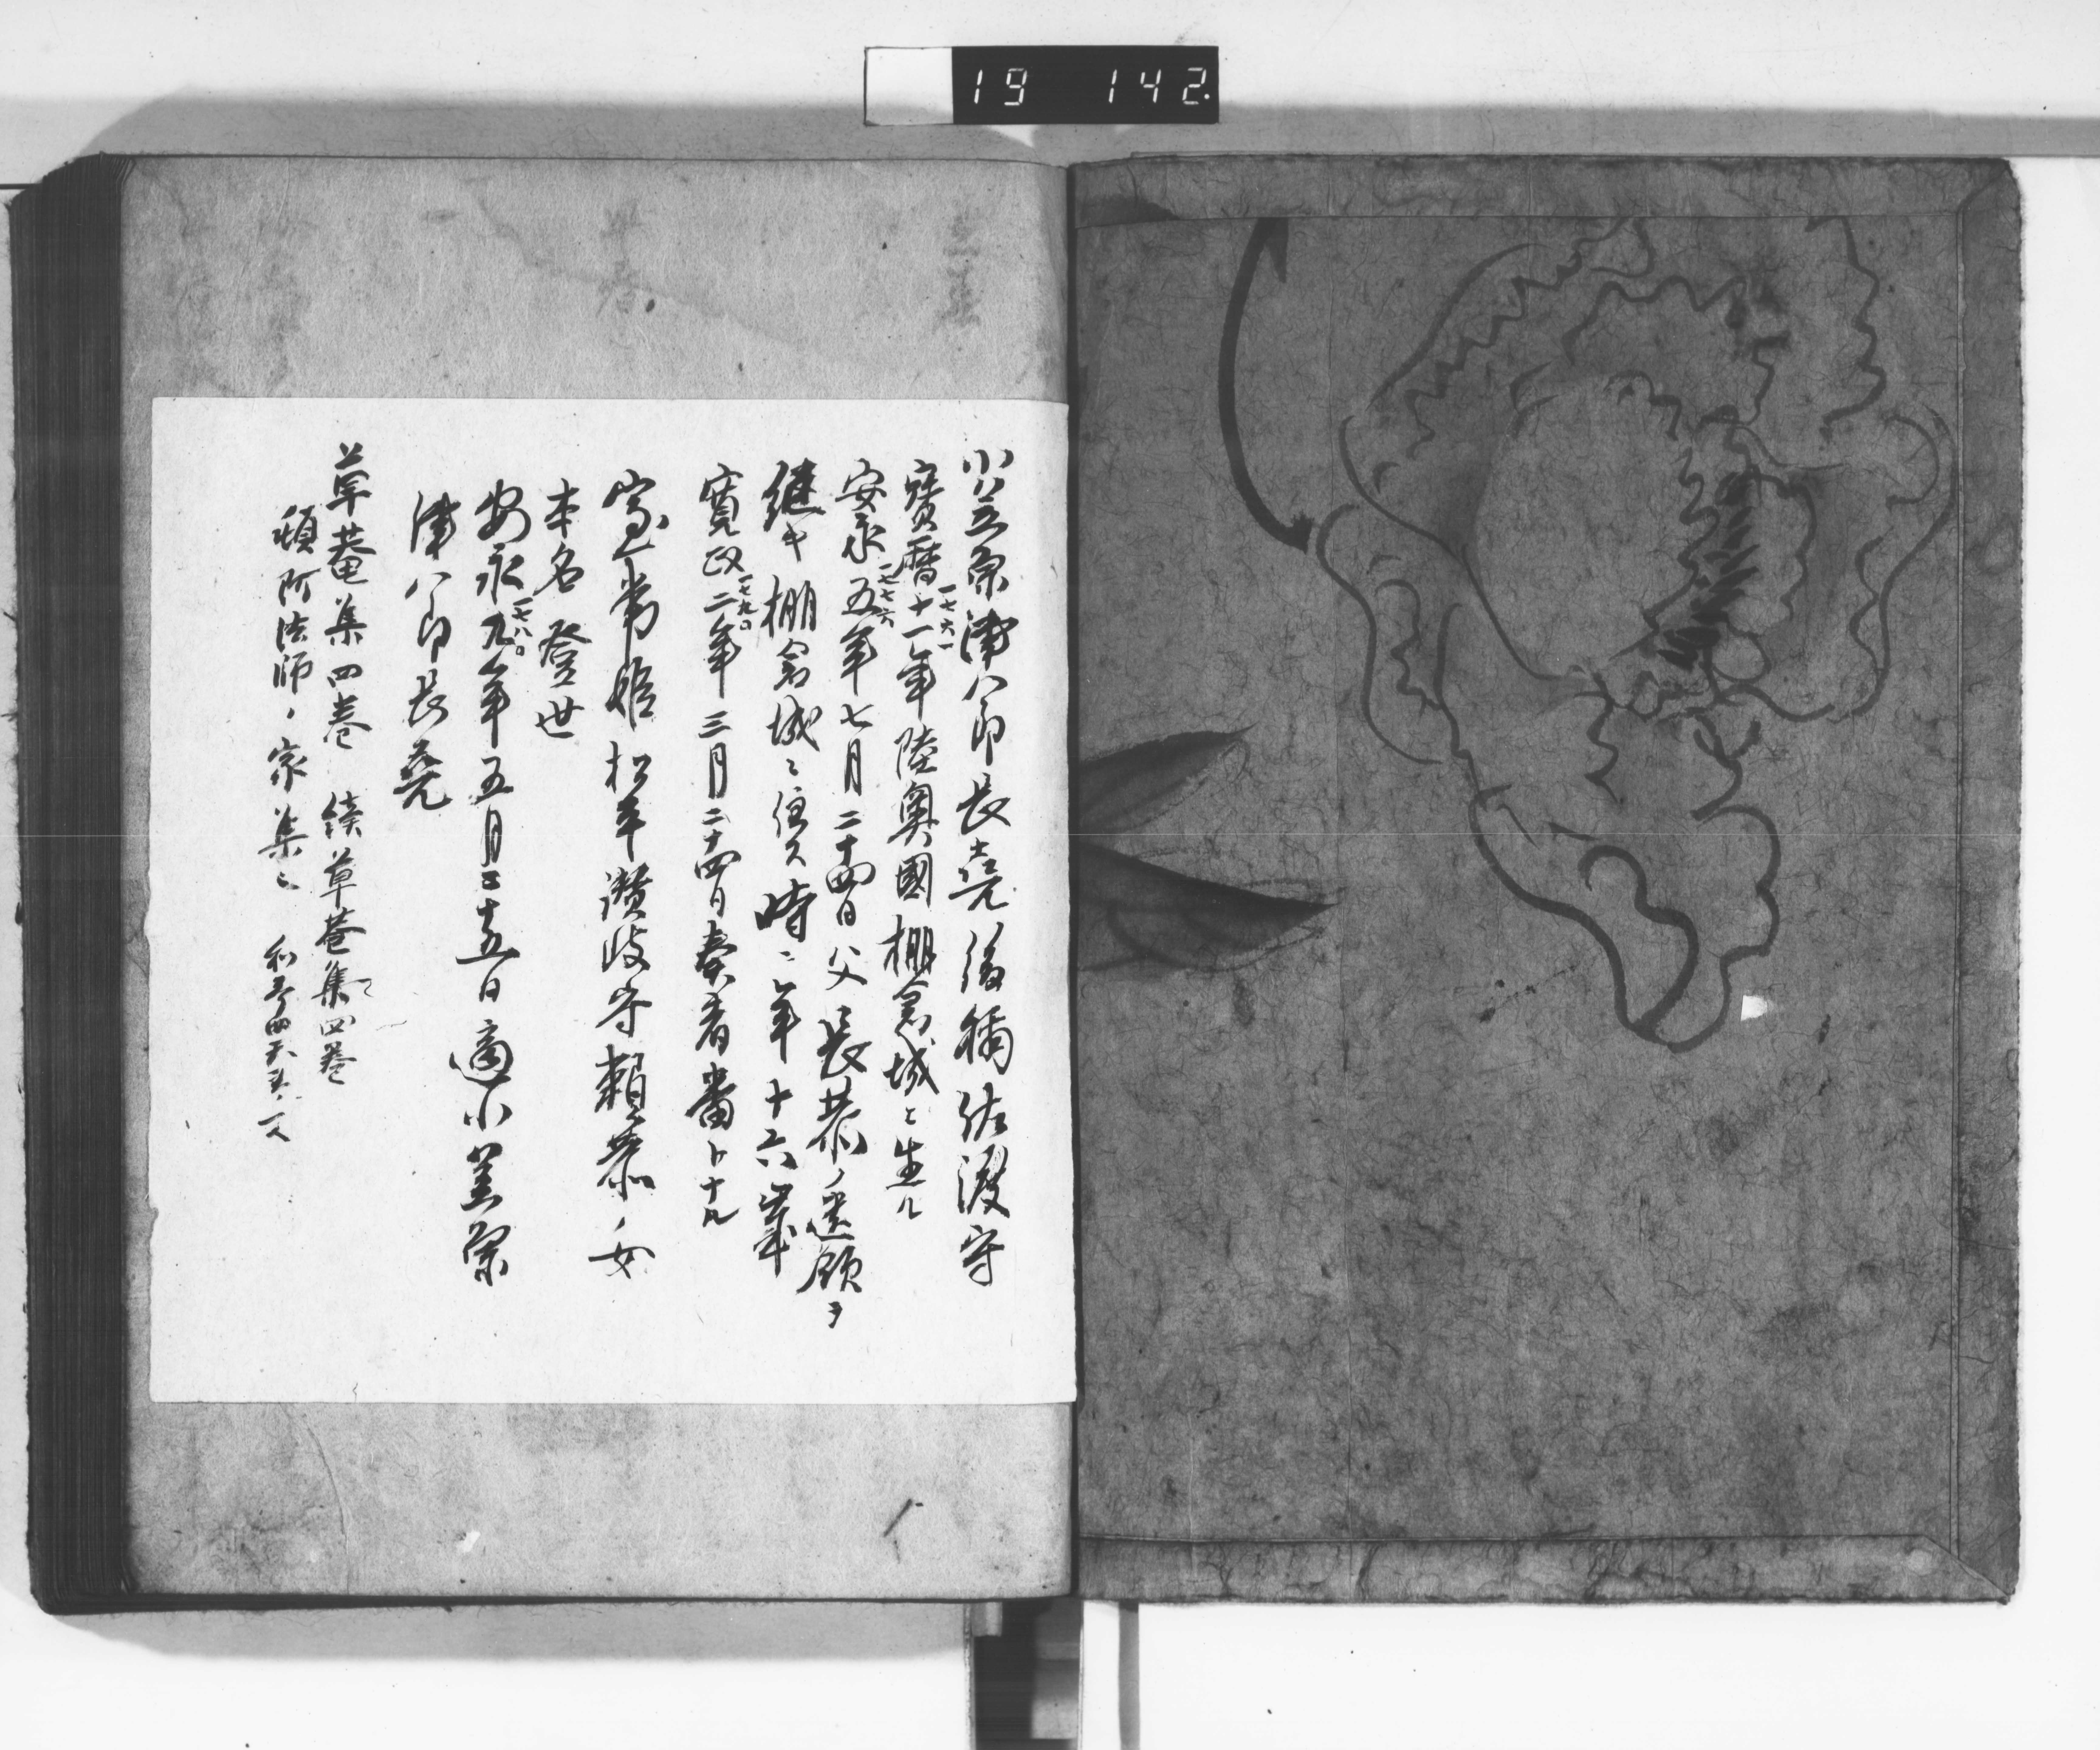 19 142.
小笠原津八郎長堯後稱佐渡守
寶暦十一年陸奥國棚倉城ニ生ル
一七六一
安永五年七月二十四日父長恭ノ遺領ヲ
一七七六
継キ棚倉城ニ住ス時ニ年十六歳
寛政二年三月二十四日奏者番ト十凡
一七九〇
室常姫松平讃岐守頼恭ノ女
本名登世
安永九年五月二十五日適小笠原
一七八〇
津八郎長堯
草菴集四巻 續草菴集四巻
頓阿法師ノ家集ニ